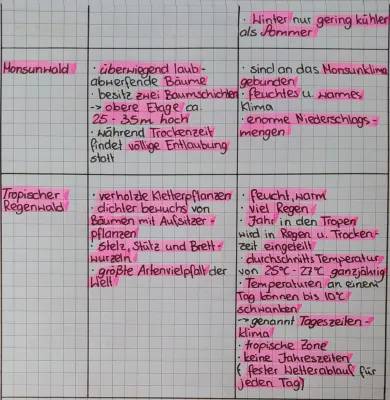 · Winter nur gering kühler
als Sommer
Monsunwald
· überwiegend laub-
abwerfende Bäume
· besitz zwei Baumschichten
-> obere Etage ca.
25 - 35m hoch
· während Trockenzeit
findet völlige Entlaubung
statt
· sind an das Monsunklima
gebunden
· feuchtes u. warmes
Klima
· enorme Niederschlags-
mengen
Tropischer
Regenwald
· verholzte Kletterpflanzen
· dichter bewuchs von
Bäumen mit Aufsitzer-
pflanzen
· Stelz, Stütz und Brett-
wurzeln
· größte Artenvielpfalt der
Welt
· feucht, warm
· viel Regen
· Jahr in den Tropen
wird in Regen u. Trocken-
zeit eingeteilt
· durchschnitts Temperatur
von 25°C - 27°C ganzjährig
· Temperaturen an einem
Tag können bis 10°C
schwanken
-> genannt Tageszeiten-
klima
· tropische Zone
· keine Jahreszeiten
( fester Wetterablauf für
jeden Tag)